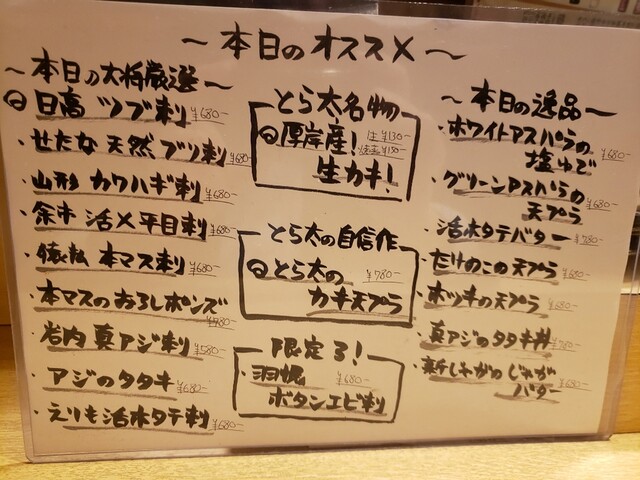 ～本日のオススメ～
～本日の大将厳選～
日高 ツブ刺 ¥680-
・せたな 天然 ブリ刺 ¥680-
・山形 カワハギ刺 ¥680-
・余市 活〆平目刺 ¥680-
・ 本マス刺 ¥680-
・本マスのおろしポンズ
・岩内 真アジ刺 ¥580-
・アジのタタキ ¥680-
・えりも活ホタテ刺 ¥680-
とら太名物
厚岸産! 生¥130-
¥150-
生カキ!
とら太の自信作
とら太の ¥780-
カキ天プラ
限定3!
・羽幌 ¥680-
ボタンエビ刺
～本日の逸品～
・ホワイトアスパラの
塩ゆで ¥680-
・グリーンアスパラの
天プラ ¥680-
・活ホタテバター ¥780-
・たけのこの天プラ ¥680-
・ホッキの天プラ ¥680-
・真アジのタタキ丼 ¥780-
・新じゃがのじゃが
バター ¥680-